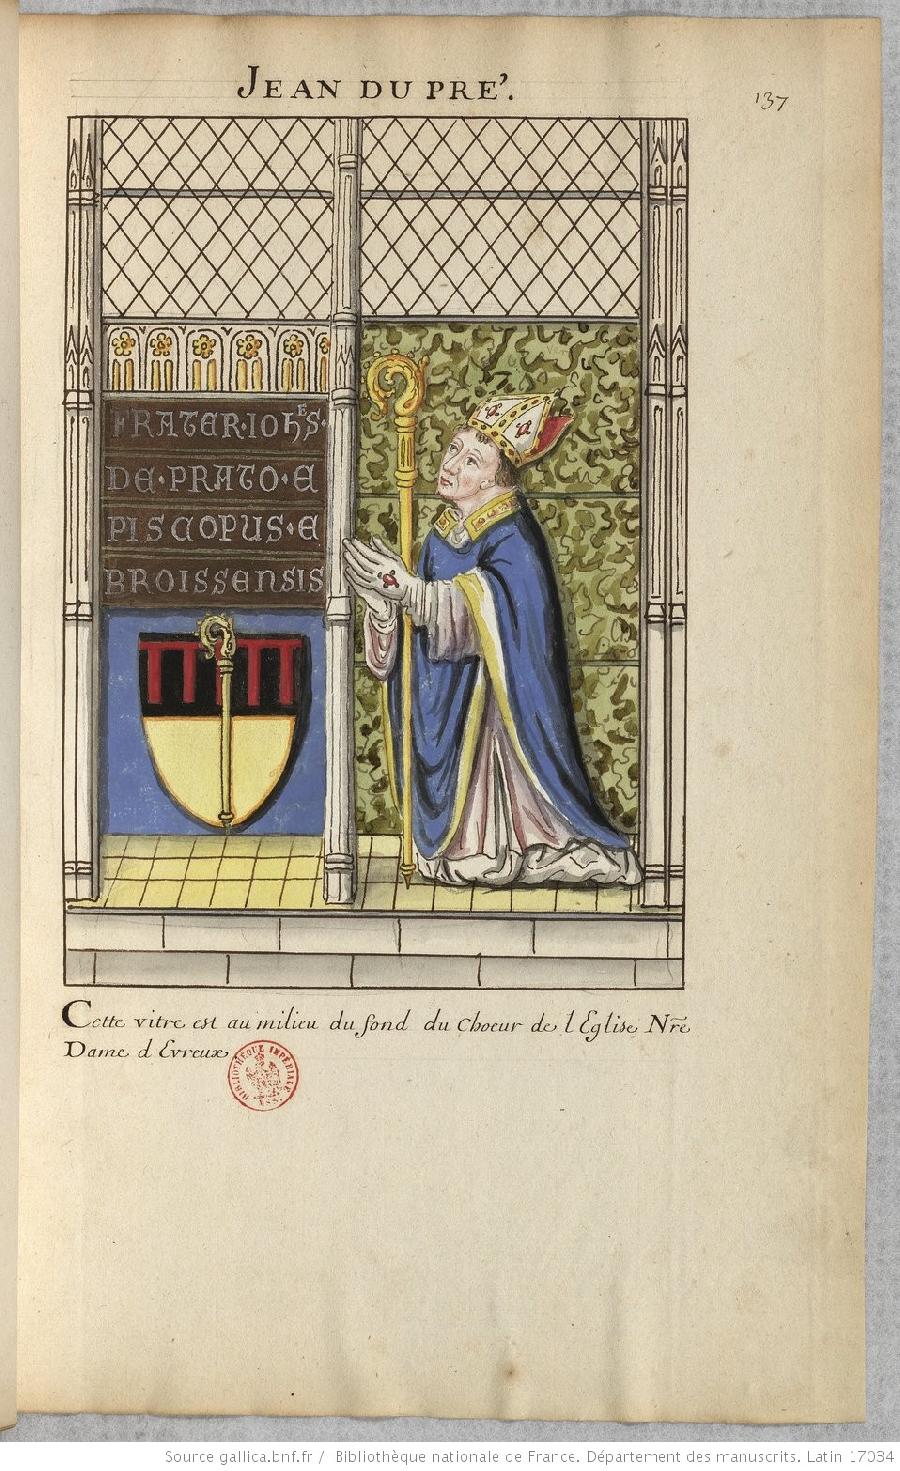 JEAN DU PRE'.
137
FRATER·IOHES·
DE·PRATO·E
PISCOPUS·E
BROISSENSIS
Cette vitre est au milieu du fond du Choeur de l Eglise Nr̃e
Dame d Evreux
BIBLIOTHÈQUE IMPÉRIALE
Source gallica.bnf.fr / Bibliothèque nationale de France. Département des manuscrits. Latin 17034